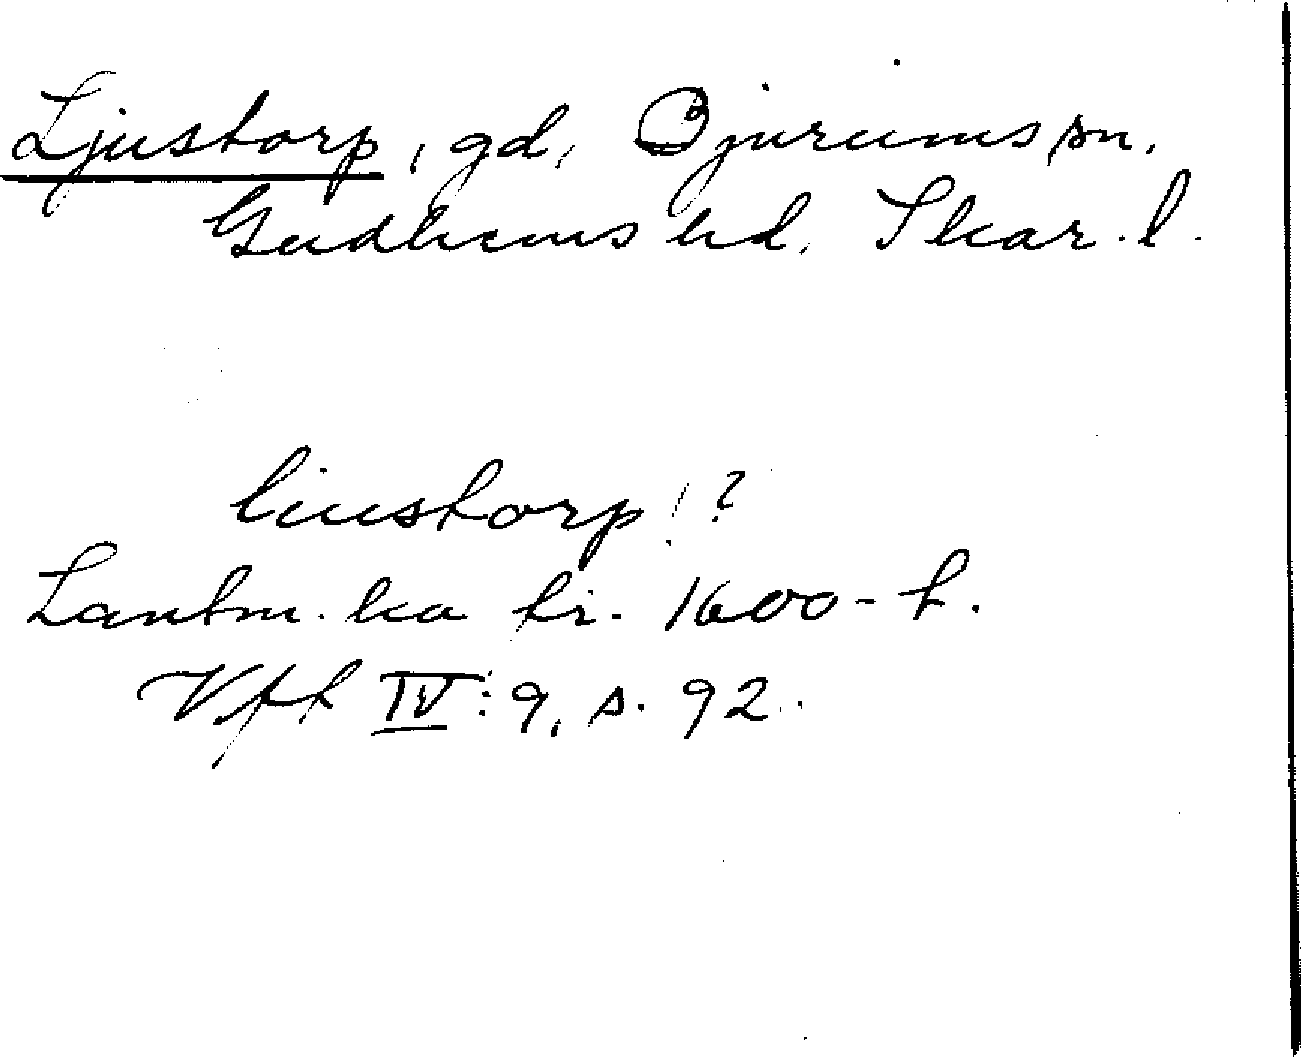 Ljustorp, gd, Bjurums sn.
Gudhems hd. Skar. l.
liustorp!?
Lantm. ka fr. 1600-t.
Vft IV: 9, s. 92.